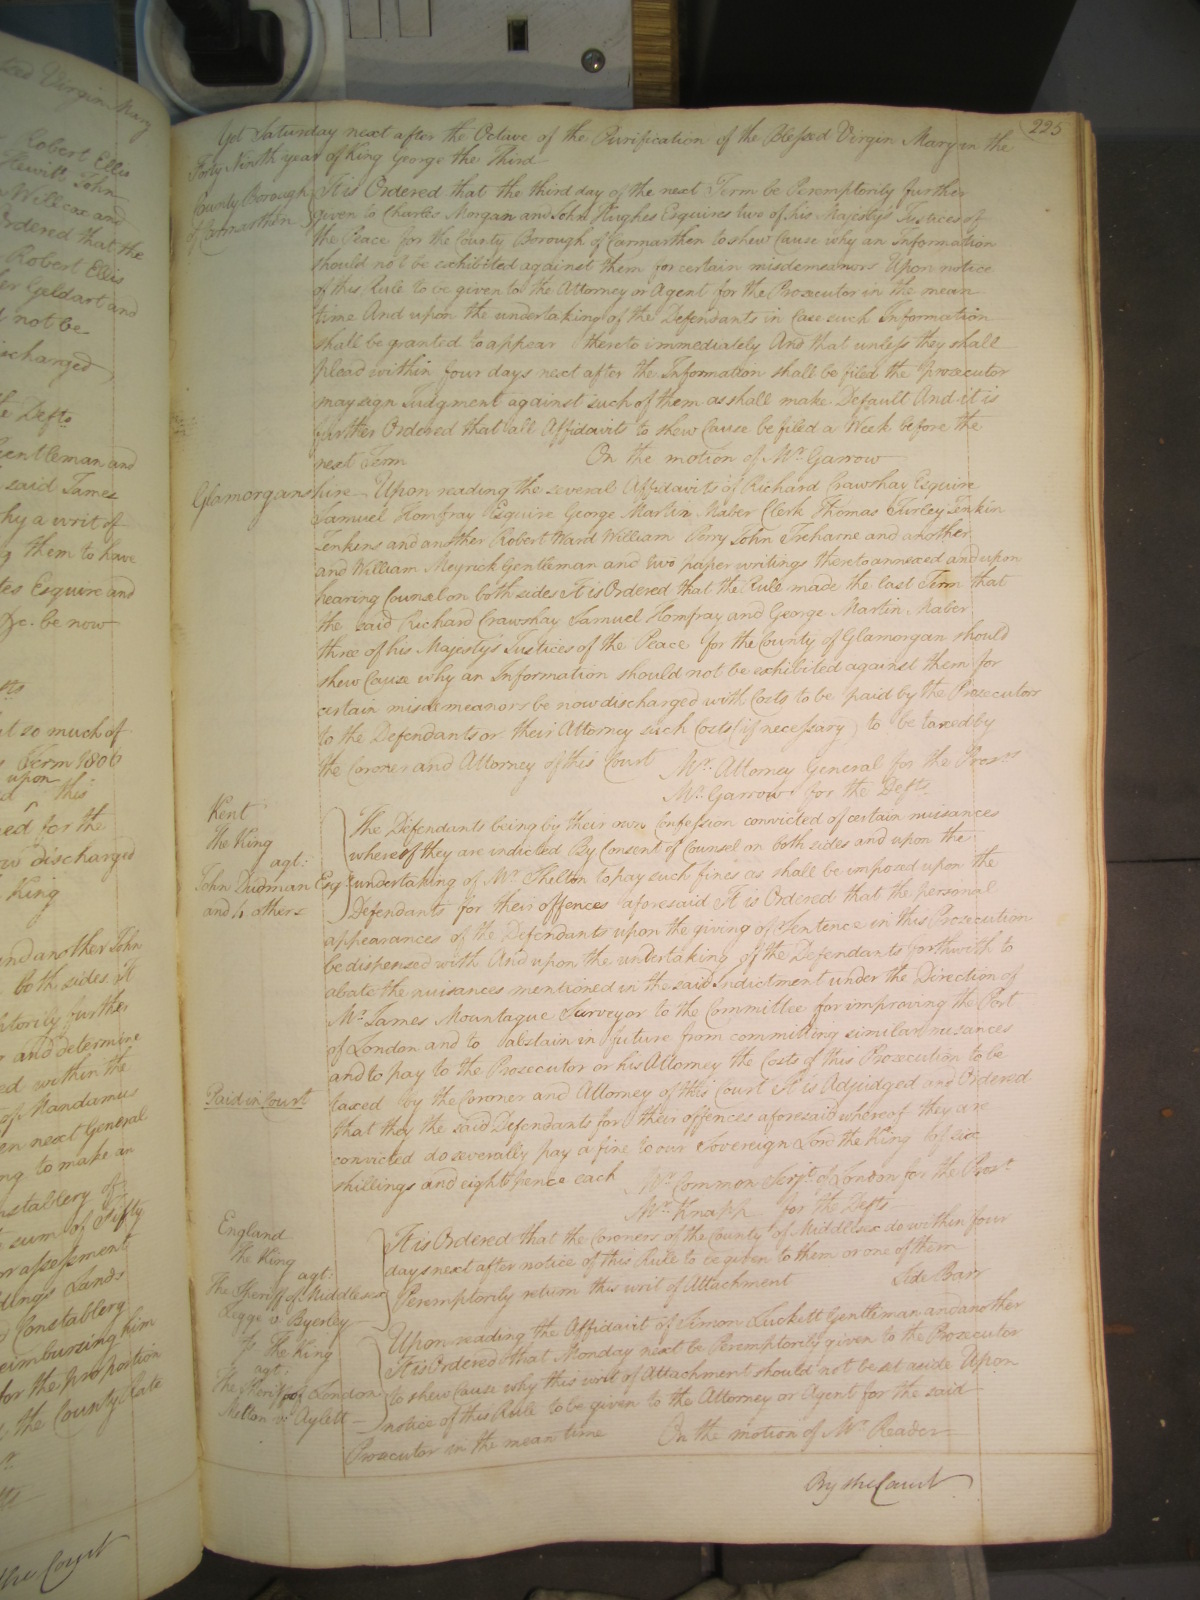 225
Yet Saturday next after the Octave of the Purification of the Blessed Virgin Mary in the
Forty Ninth year of King George the Third
County Borough
of Carmarthen
It is Ordered that the third day of the next Term be Peremptorily further
given to Charles Morgan and John Hughes Esquires two of his Majesty's Justices of
the Peace for the County Borough of Carmarthen to shew Cause why an Information
should not be exhibited against them for certain misdemeanors Upon notice
of this Rule to be given to the Attorney or Agent for the Prosecutor in the mean
time And upon the undertaking of the Defendants in Case such Information
shall be granted to appear thereto immediately And that unless they shall
plead within four days next after the Information shall be filed the Prosecutor
may sign Judgment against such of them as shall make Default And it is
further Ordered that all Affidavits to shew Cause be filed a Week before the
next Term On the motion of Mr. Garrow
Glamorganshire Upon reading the several Affidavits of Richard Crawshay Esquire
Samuel Homfray Esquire George Martin Maber Clerk Thomas Turley Jenkin
Jenkins and another Robert Ward William Perry John Treharne and another
and William Meyrick Gentleman and two paper writings thereto annexed and upon
hearing Counsel on both sides It is Ordered that the Rule made the last Term that
the said Richard Crawshay Samuel Homfray and George Martin Maber
three of his Majesty's Justices of the Peace for the County of Glamorgan should
shew Cause why an Information should not be exhibited against them for
certain misdemeanors be now discharged with Costs to be paid by the Prosecutor
to the Defendants or their Attorney such Costs (if necessary) to be taxed by
the Coroner and Attorney of this Court Mr. Attorney General for the Prosr.
Mr. Garrow for the Defts.
Kent
The King
agt:
John Dudman Esq
and 6 others
The Defendants being by their own Confession convicted of certain nuisances
whereof they are indicted By Consent of Counsel on both sides and upon the
undertaking of Mr. Shelton to pay such fines as shall be imposed upon the
Defendants for their offences aforesaid It is Ordered that the personal
appearances of the Defendants upon the giving of Sentence in this Prosecution
be dispensed with And upon the undertaking of the Defendants forthwith to
abate the nuisances mentioned in the said Indictment under the Direction of
Mr. James Mountague Surveyor to the Committee for improving the Port
of London and to abstain in future from committing similar nuisances
and to pay to the Prosecutor or his Attorney the Costs of this Prosecution to be
Paid in Court
taxed by the Coroner and Attorney of this Court It is Adjudged and Ordered
that they the said Defendants for their offences aforesaid whereof they are
convicted do severally pay a fine to our Sovereign Lord the King of six
shillings and eight pence each Mr. Common Serjt. of London for the Prosr.
Mr. Knapp for the Defts
England
The King
agt:
The Sheriff of Middlesex
Legge v. Byerley
It is Ordered that the Coroners of the County of Middlesex do within four
days next after notice of this Rule to be given to them or one of them
Peremptorily return this writ of Attachment Side Barr
The King
agt:
The Sheriff of London
Melton v. Aylett
Upon reading the Affidavit of Simon Luckett Gentleman and another
It is Ordered that Monday next be Peremptorily given to the Prosecutor
to shew Cause why this writ of Attachment should not be set aside Upon
notice of this Rule to be given to the Attorney or Agent for the said
Prosecutor in the mean time On the motion of Mr. Reader
By the Court